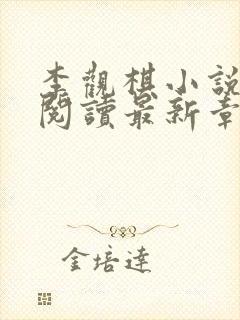 李觀棋小說
閱讀最新章
金培達